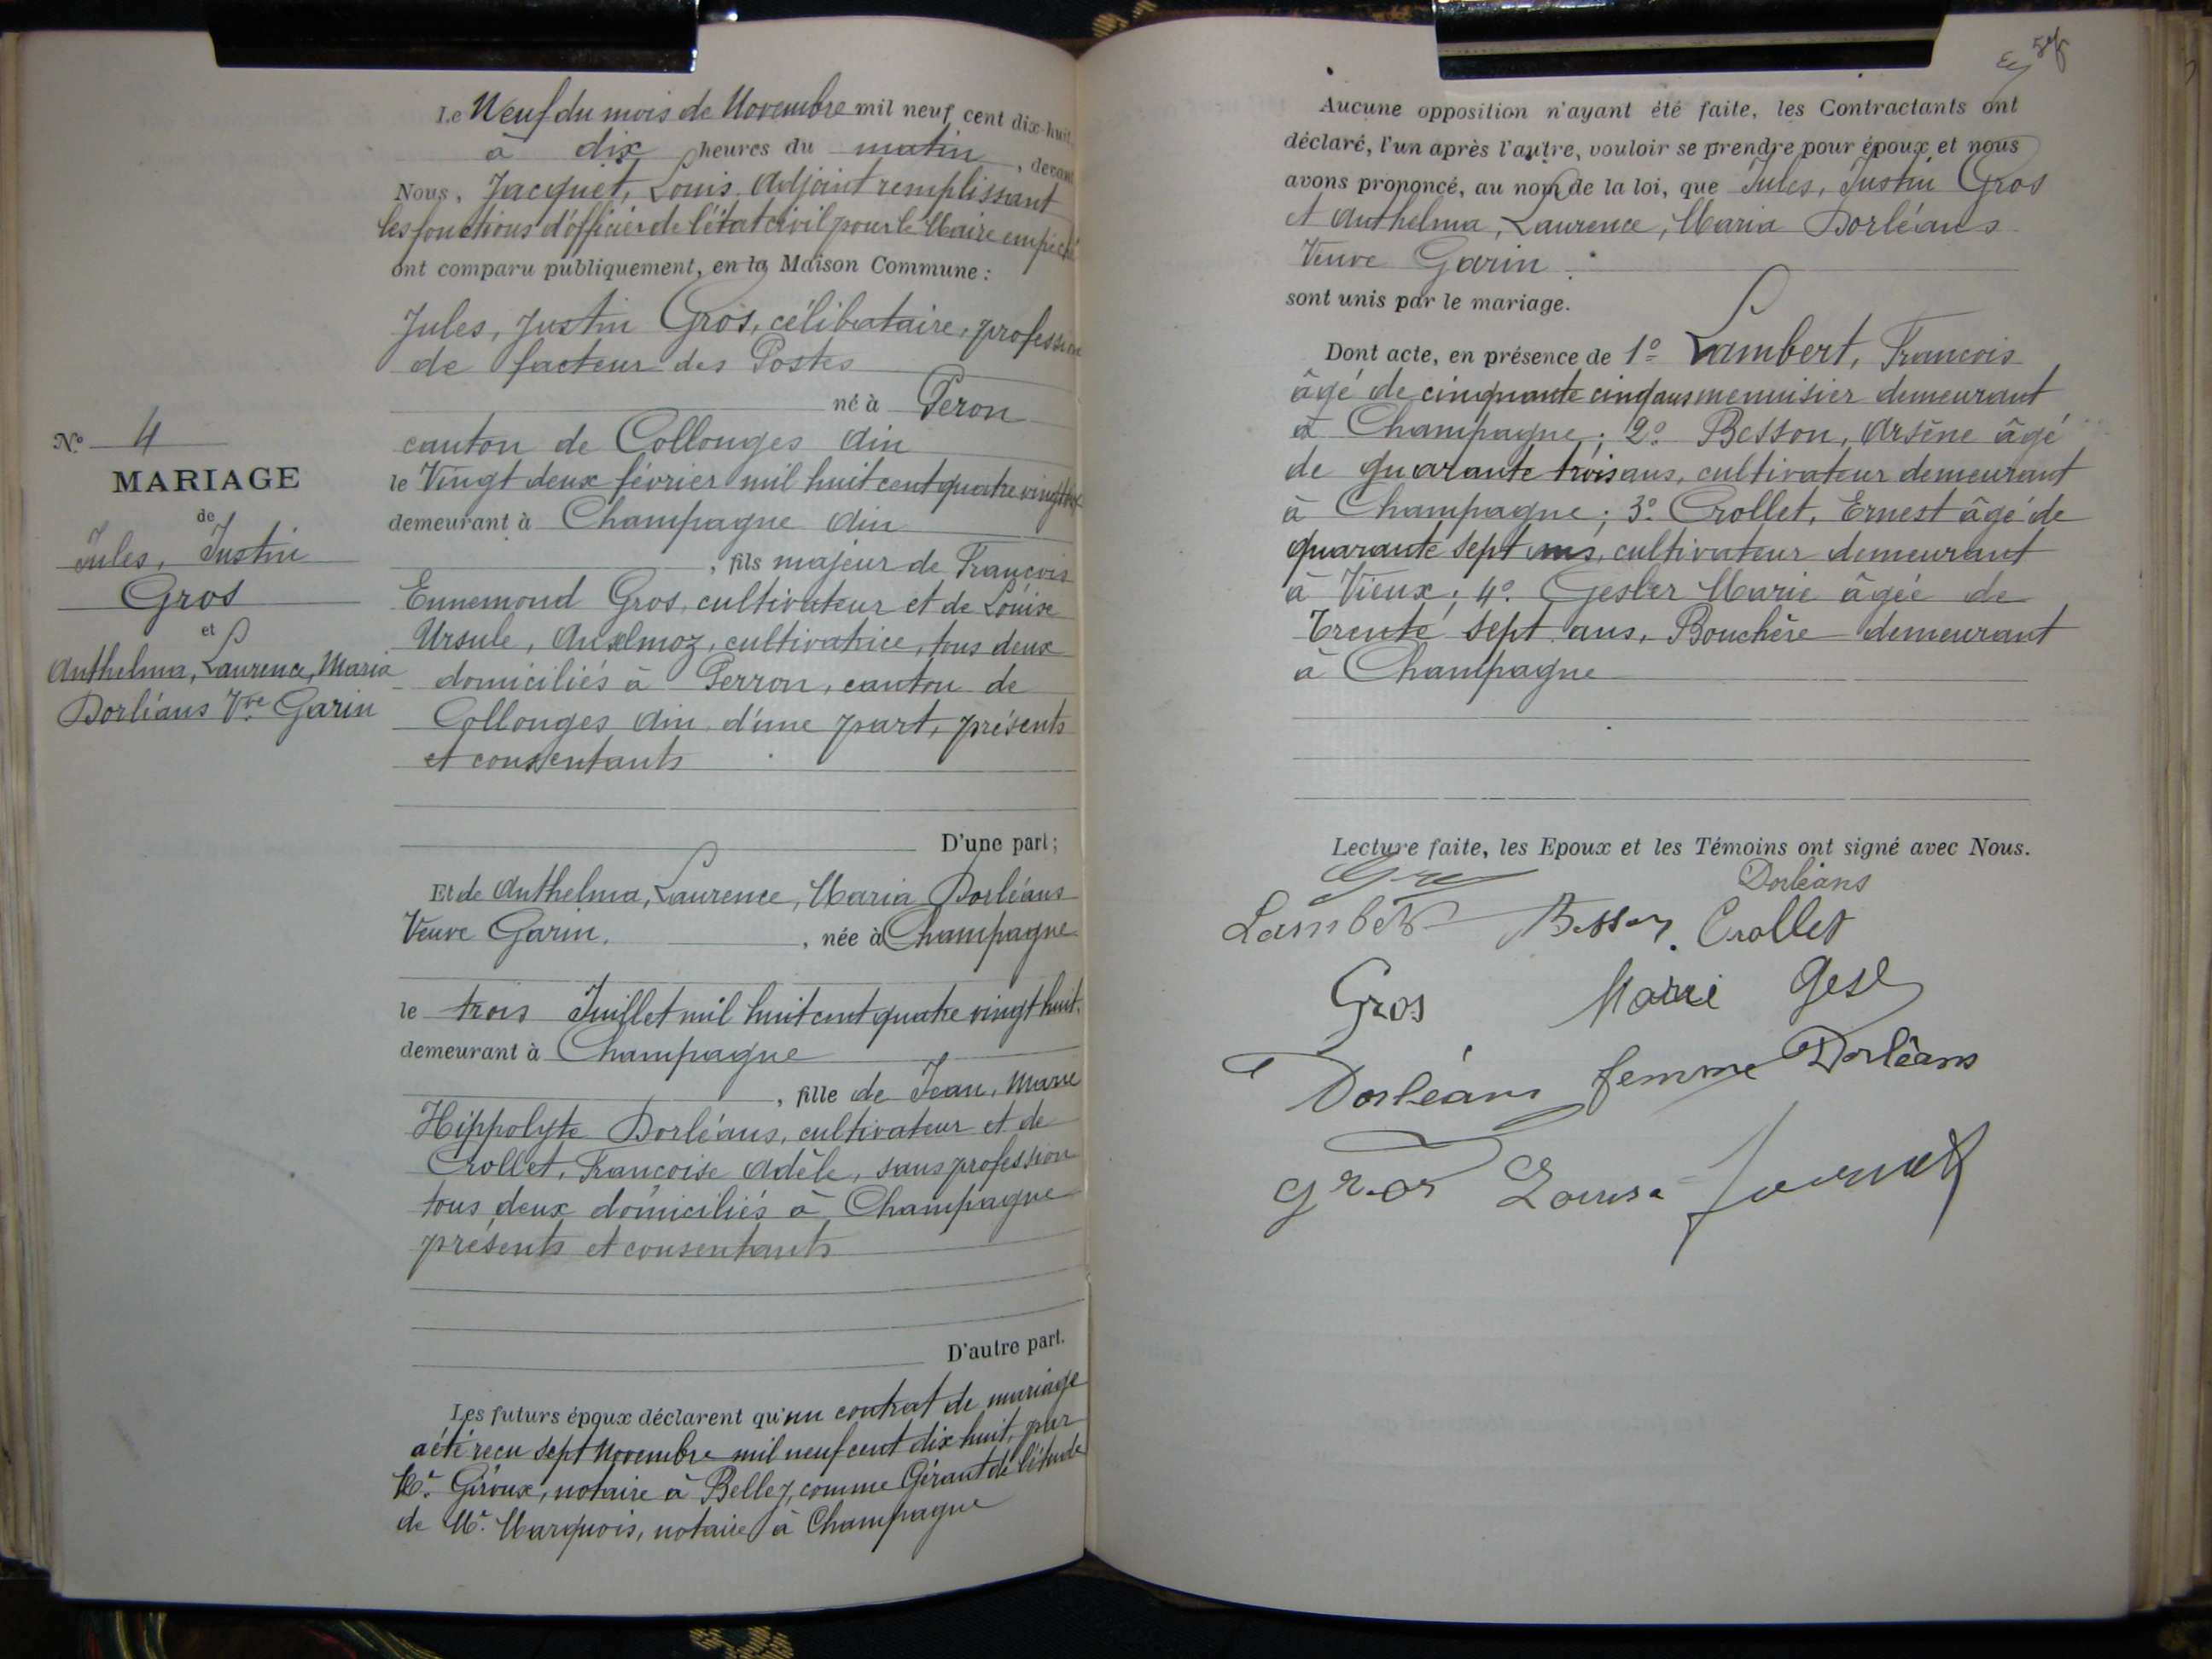 Le Neuf du mois de Novembre mil neuf cent dix-huit
à dix heures du matin, devant
Nous, Jacquet, Louis Adjoint remplissant
les fonctions d'officier de l'état civil pour le Maire empêché
ont comparu publiquement, en la Maison Commune :
Jules, Justin Gros, célibataire, profession
de facteur des Postes
né à Peron
canton de Collonges Ain
le Vingt deux février mil huit cent quatre vingt
demeurant à Champagne Ain
, fils majeur de François
Ennemond Gros, cultivateur et de Louise
Ursule, Anselmoz, cultivatrice, tous deux
domiciliés à Perron, canton de
Collonges Ain d'une part, présents
et consentants
D'une part ;
Et de Anthelma, Laurence, Maria Dorléans
Veuve Garin, , née à Champagne
le trois Juillet mil huit cent quatre vingt huit.
demeurant à Champagne
, fille de Jean, Marie
Hippolyte Dorléans, cultivateur et de
Crollet, Françoise Adèle, sans profession
tous deux domiciliés à Champagne
présents et consentants
D'autre part.
Les futurs époux déclarent qu'un contrat de mariage
a été reçu sept Novembre mil neuf cent dix huit, par
Mr. Giroux, notaire à Belley, comme Gérant de l'étude
de Mr. Marquois, notaire à Champagne
No 4
MARIAGE
de
Jules, Justin
Gros
et
Anthelma, Laurence, Maria
Dorléans Vve Garin
Aucune opposition n'ayant été faite, les Contractants ont
déclaré, l'un après l'autre, vouloir se prendre pour époux, et nous
avons prononcé, au nom de la loi, que Jules, Justin Gros
et Anthelma, Laurence, Maria Dorléans
Veuve Garin
sont unis par le mariage.
Dont acte, en présence de 1o Lambert, François
âgé de cinquante cinq ans menuisier demeurant
à Champagne ; 2o Besson, Arsène âgé
de quarante trois ans, cultivateur demeurant
à Champagne ; 3o Crollet, Ernest âgé de
quarante sept ans, cultivateur demeurant
à Vieux ; 4o Gesler Marie âgée de
Trente sept ans, Bouchère demeurant
à Champagne
Lecture faite, les Epoux et les Témoins ont signé avec Nous.
Dorléans
Lambert Besson Crollet
Gros Marie Gesl
Dorléans femme Dorléans
gros Louise Jacquet